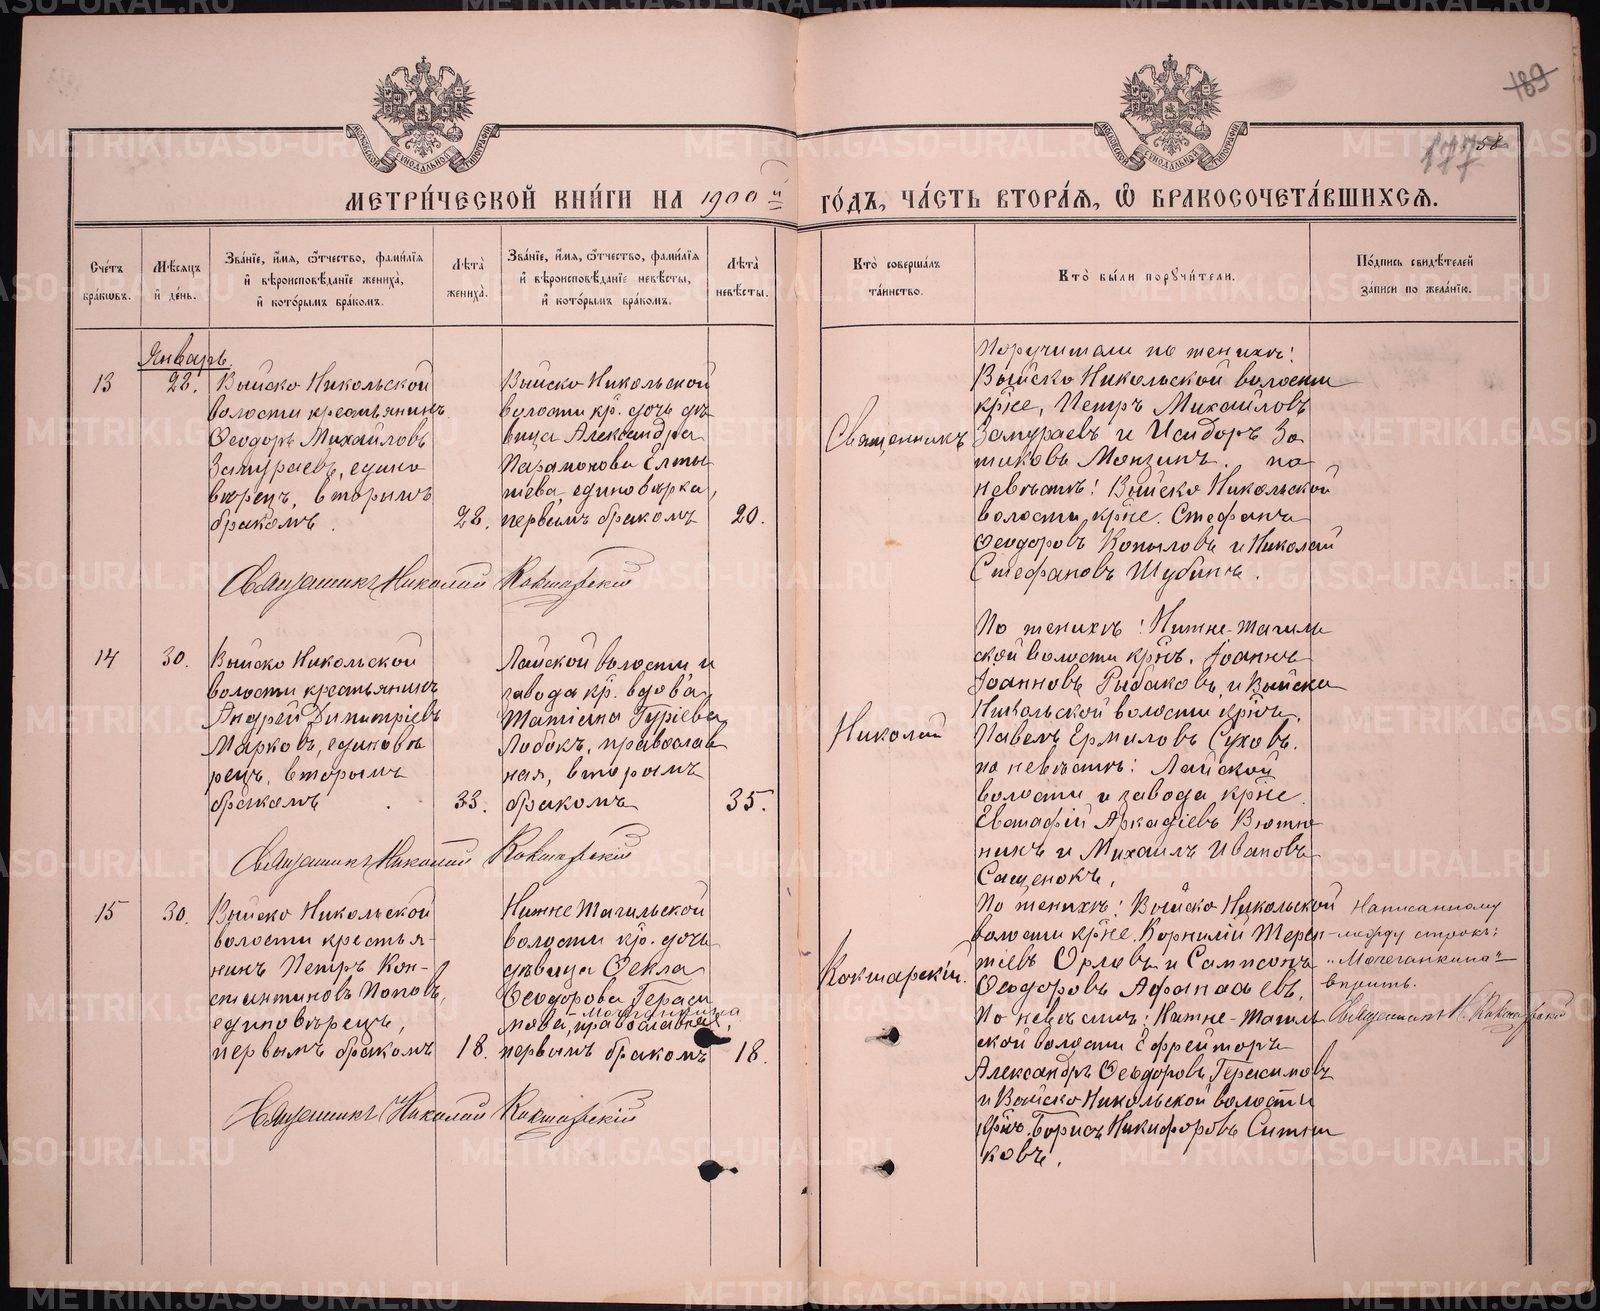 189
177
58
МЕТРИ́ЧЕСКОЙ КНИ́ГИ НА 1900й ГО́ДЪ, ЧА́СТЬ ВТОРА́Я, Ѽ БРАКОСОЧЕТА́ВШИХСЯ.
Сче́тъ бра́кωвъ.
Мѣ́сяцъ и҆ де́нь.
Зва́нїе, и҆́мя, ѻ҆́тчество, фами́лїя и҆ вѣроисповѣ́данїе жениха̀, и҆ кото́рымъ бра́комъ.
Лѣ́та̀ жениха̀.
Зва́нїе, и҆́мя, ѻ҆́тчество, фами́лїя и҆ вѣроисповѣ́данїе невѣ́сты, и҆ кото́рымъ бра́комъ.
Лѣ́та̀ невѣ́сты.
Кто̀ соверша́лъ та́инство.
Кто̀ бы́ли порꙋчи́тели.
По́дпись свидѣ́телей за́писи по жела́нїю.
Январь.
13
22.
Выйско Никольской
волости крестьянинъ
Ѳеодоръ Михайловъ
Замураевъ, едино
вѣрецъ, вторымъ
бракомъ.
22.
Выйско Никольской
волости кр. дочь дѣ
вица Александра
Парамонова Елты
шева, единовѣрка,
первымъ бракомъ
20.
Священникъ Николай Кокшарскій
Священникъ
Поручители по женихѣ:
Выйско Никольской волости
кр̃не, Петръ Михайловъ
Замураевъ и Исидоръ Зо
тиковъ Монзинъ. по
невѣстѣ: Выйско Никольской
волости кр̃не. Стефанъ
Ѳеодоровъ Копыловъ и Николай
Стефановъ Шубинъ.
14
30.
Выйско Никольской
волости крестьянинъ
Андрей Димитріевъ
Марковъ, единовѣ
рецъ, вторымъ
бракомъ
33.
Лайской волости и
завода кр. вдова
Татіана Гуріева
Лобокъ, православ
ная, вторымъ
бракомъ
35.
Священникъ Николай Кокшарскій
Николай
По женихѣ: Нижне-Тагиль
ской волости кр̃нъ. Іоаннъ
Іоанновъ Рыбаковъ, и Выйско
Никольской волости кр̃нъ,
Павелъ Ермиловъ Суховъ.
по невѣстѣ: Лайской
волости и завода кр̃не.
Евстафій Аркадіевъ Вютне
никъ и Михаилъ Ивановъ
Сащенокъ.
15
30.
Выйско Никольской
волости крестья-
нинъ Петръ Кон-
стантиновъ Поповъ,
единовѣрецъ,
первымъ бракомъ
18.
Нижне Тагильской
волости кр. дочь
дѣвица Ѳекла
Ѳеодорова Гераси
мова, православная,
первымъ бракомъ
18.
Священникъ Николай Кокшарскій
Кокшарскій.
По женихѣ: Выйско Никольской
волости кр̃не. Корнилій Терен
тіевъ Орловъ и Сампсонъ
Ѳеодоровъ Афанасьевъ.
По невѣстѣ: Нижне-Тагиль
ской волости Ефрейторъ
Александръ Ѳеодоровъ Герасимовъ
и Выйско Никольской волости
кр̃нъ. Борисъ Никифоровъ Ситни
ковъ.
Написанному
между строкъ:
вѣрить.
Священникъ Н. Кокшарскій
METRIKI.GASO-URAL.RU